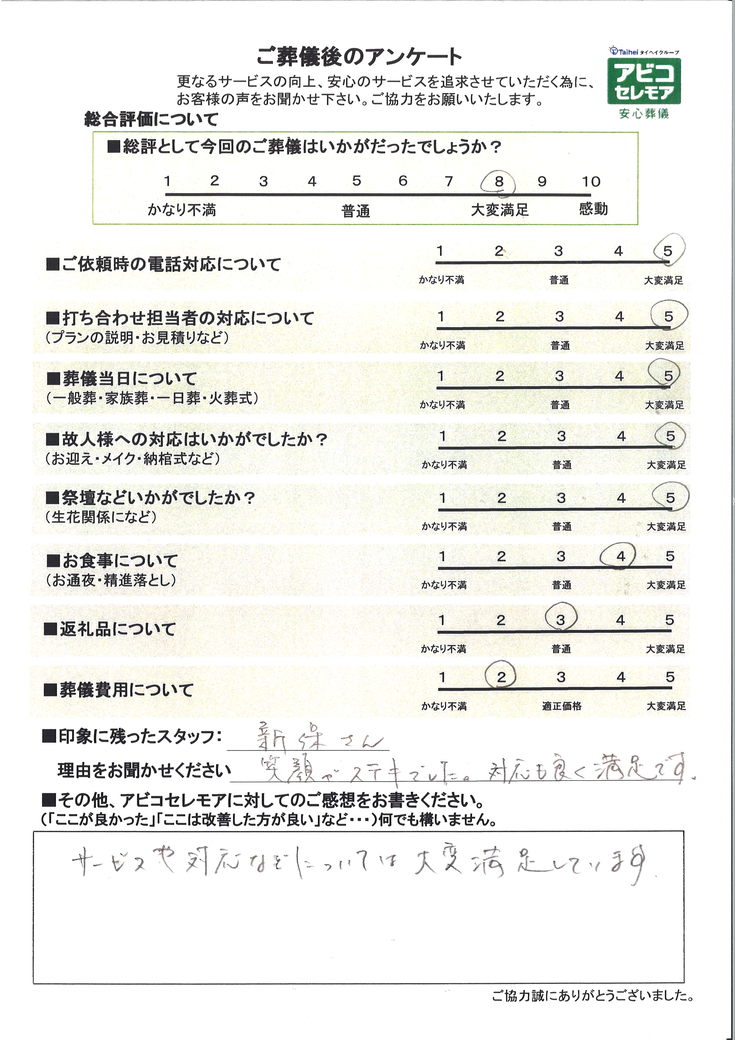 ご葬儀後のアンケート
Taihei タイヘイグループ
アビコ
セレモア
安心葬儀
更なるサービスの向上、安心のサービスを追求させていただく為に、
お客様の声をお聞かせ下さい。ご協力をお願いいたします。
総合評価について
■総評として今回のご葬儀はいかがだったでしょうか?
1 2 3 4 5 6 7 8 9 10
かなり不満 普通 大変満足 感動
■ご依頼時の電話対応について
1 2 3 4 5
かなり不満 普通 大変満足
■打ち合わせ担当者の対応について
(プランの説明・お見積りなど)
1 2 3 4 5
かなり不満 普通 大変満足
■葬儀当日について
(一般葬・家族葬・一日葬・火葬式)
1 2 3 4 5
かなり不満 普通 大変満足
■故人様への対応はいかがでしたか?
(お迎え・メイク・納棺式など)
1 2 3 4 5
かなり不満 普通 大変満足
■祭壇などいかがでしたか?
(生花関係になど)
1 2 3 4 5
かなり不満 普通 大変満足
■お食事について
(お通夜・精進落とし)
1 2 3 4 5
かなり不満 普通 大変満足
■返礼品について
1 2 3 4 5
かなり不満 普通 大変満足
■葬儀費用について
1 2 3 4 5
かなり不満 適正価格 大変満足
■印象に残ったスタッフ: 新保さん
理由をお聞かせください 笑顔がステキでした。対応も良く満足です。
■その他、アビコセレモアに対してのご感想をお書きください。
(「ここが良かった」「ここは改善した方が良い」など・・・)何でも構いません。
サービスや対応などについては大変満足しています
ご協力誠にありがとうございました。